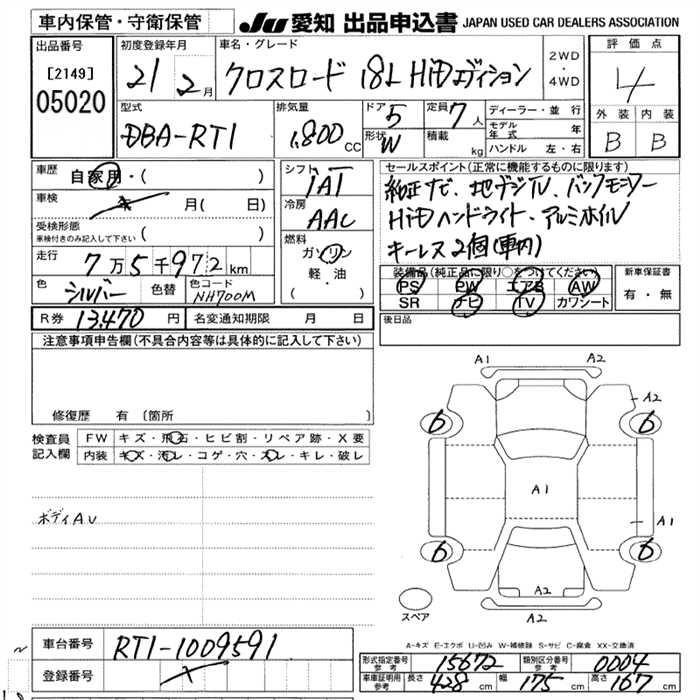 車内保管・守衛保管
JU 愛知 出品申込書 JAPAN USED CAR DEALERS ASSOCIATION
出品番号
[2149]
05020
初度登録年月
21 2月
車名・グレード
クロスロード 18L HiDエディション
2WD
・
4WD
評価点
4
外装 内装
B B
型式
DBA-RT1
排気量
1,800 CC
ドア 5
形状 W
定員 7人
積載 kg
ディーラー・並行
モデル年式 年
ハンドル 左・右
車歴
自家用・( )
車検 年 月( 日)
受検形態
車検付きのみ記入して下さい ( )
走行 7万5千972km
色 シルバー 色替 色コード NH700M
シフト
IAT
冷房
AAC
燃料
ガソリン
軽・油
・( )
セールスポイント(正常に機能するものに限ります)
純正ナビ、地デジTV、バックモニター
HiDヘッドライト・アルミホイル
キーレス2個(車内)
装備品(純正品に限り○をつけてください)
PS PW エアB AW
SR ナビ TV カワシート
新車保証書
有・無
R券 13,470円 名変通知期限 月 日
後日品
注意事項申告欄(不具合内容等は具体的に記入して下さい)
修復歴 有 〔箇所 〕
検査員記入欄
FW キズ・飛石・ヒビ割・リペア跡・X要
内装 キズ・汚レ・コゲ・穴・スレ・キレ・破レ
ボディAU
A1 A2
A2
6 6
A1
A1
6 6
A2
A2
スペア
A-キズ E-エクボ U-凹み W-補修跡 S-サビ C-腐食 XX-交換済
車台番号 RT1-1009591
登録番号
形式指定番号 参考 15672 類別区分番号 参考 0004
車庫証明用 参考 長さ 428cm 幅 175cm 高さ 167cm